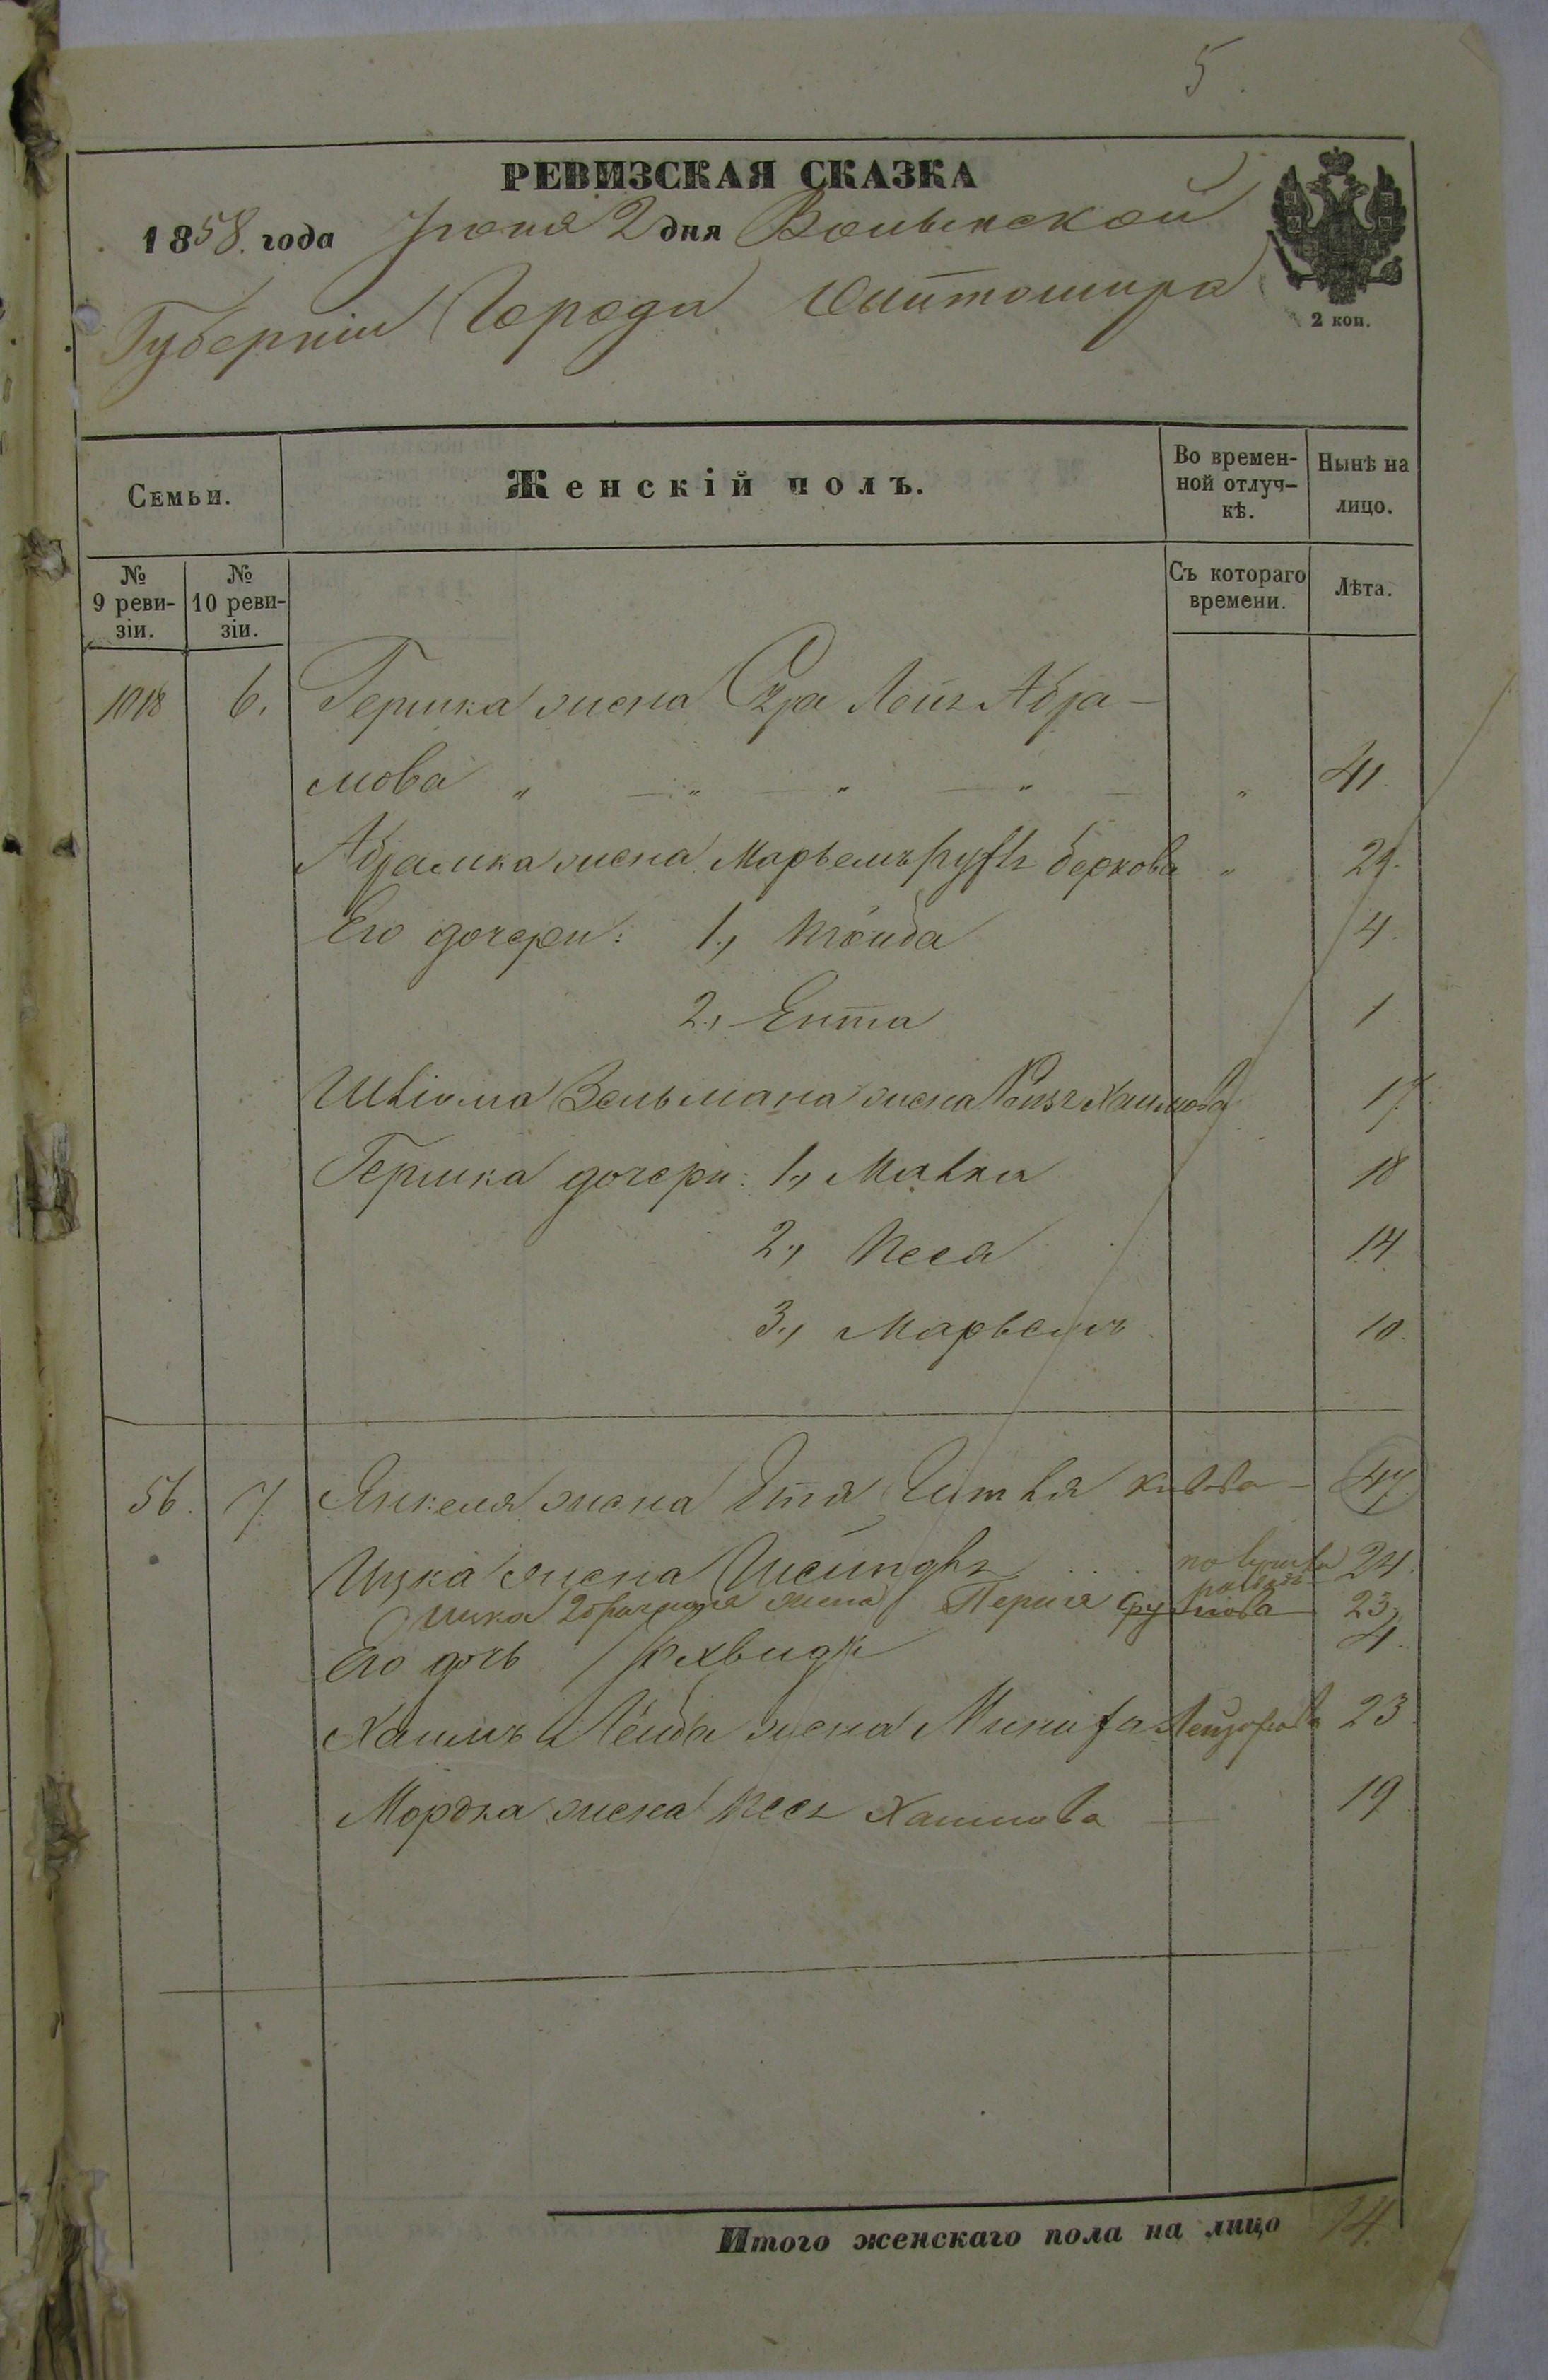 5.
РЕВИЗСКАЯ СКАЗКА
1858. года Іюня 2 дня Волынской
Губерніи Города Житомира
2 коп.
Семьи.
Женскій полъ.
Во времен-
ной отлуч-
кѣ.
Нынѣ на
лицо.
№
9 реви-
зіи.
№
10 реви-
зіи.
Съ котораго
времени.
Лѣта.
1018 6. Гершка жена Сура Абра-
мова " — " — " — " — " 41.
Абрамка жена Марьемъ Беркова " 24.
Его дочери: 1., 4.
2., Ента 1
Зельмана жена Хаимова 17.
Гершка дочери: 1., Малка 18
2., Песя 14.
3., Марьемъ 10.
56. 7. Янкеля жена Этя 47.
Ицка жена 24.
Ицка 2 брачная жена Перля 23.
Его дочь 4.
Хаимъ Лейба жена Лейзорова 23.
Мордка жена Песя Хаимова — 19
Итого женскаго пола на лицо 14.